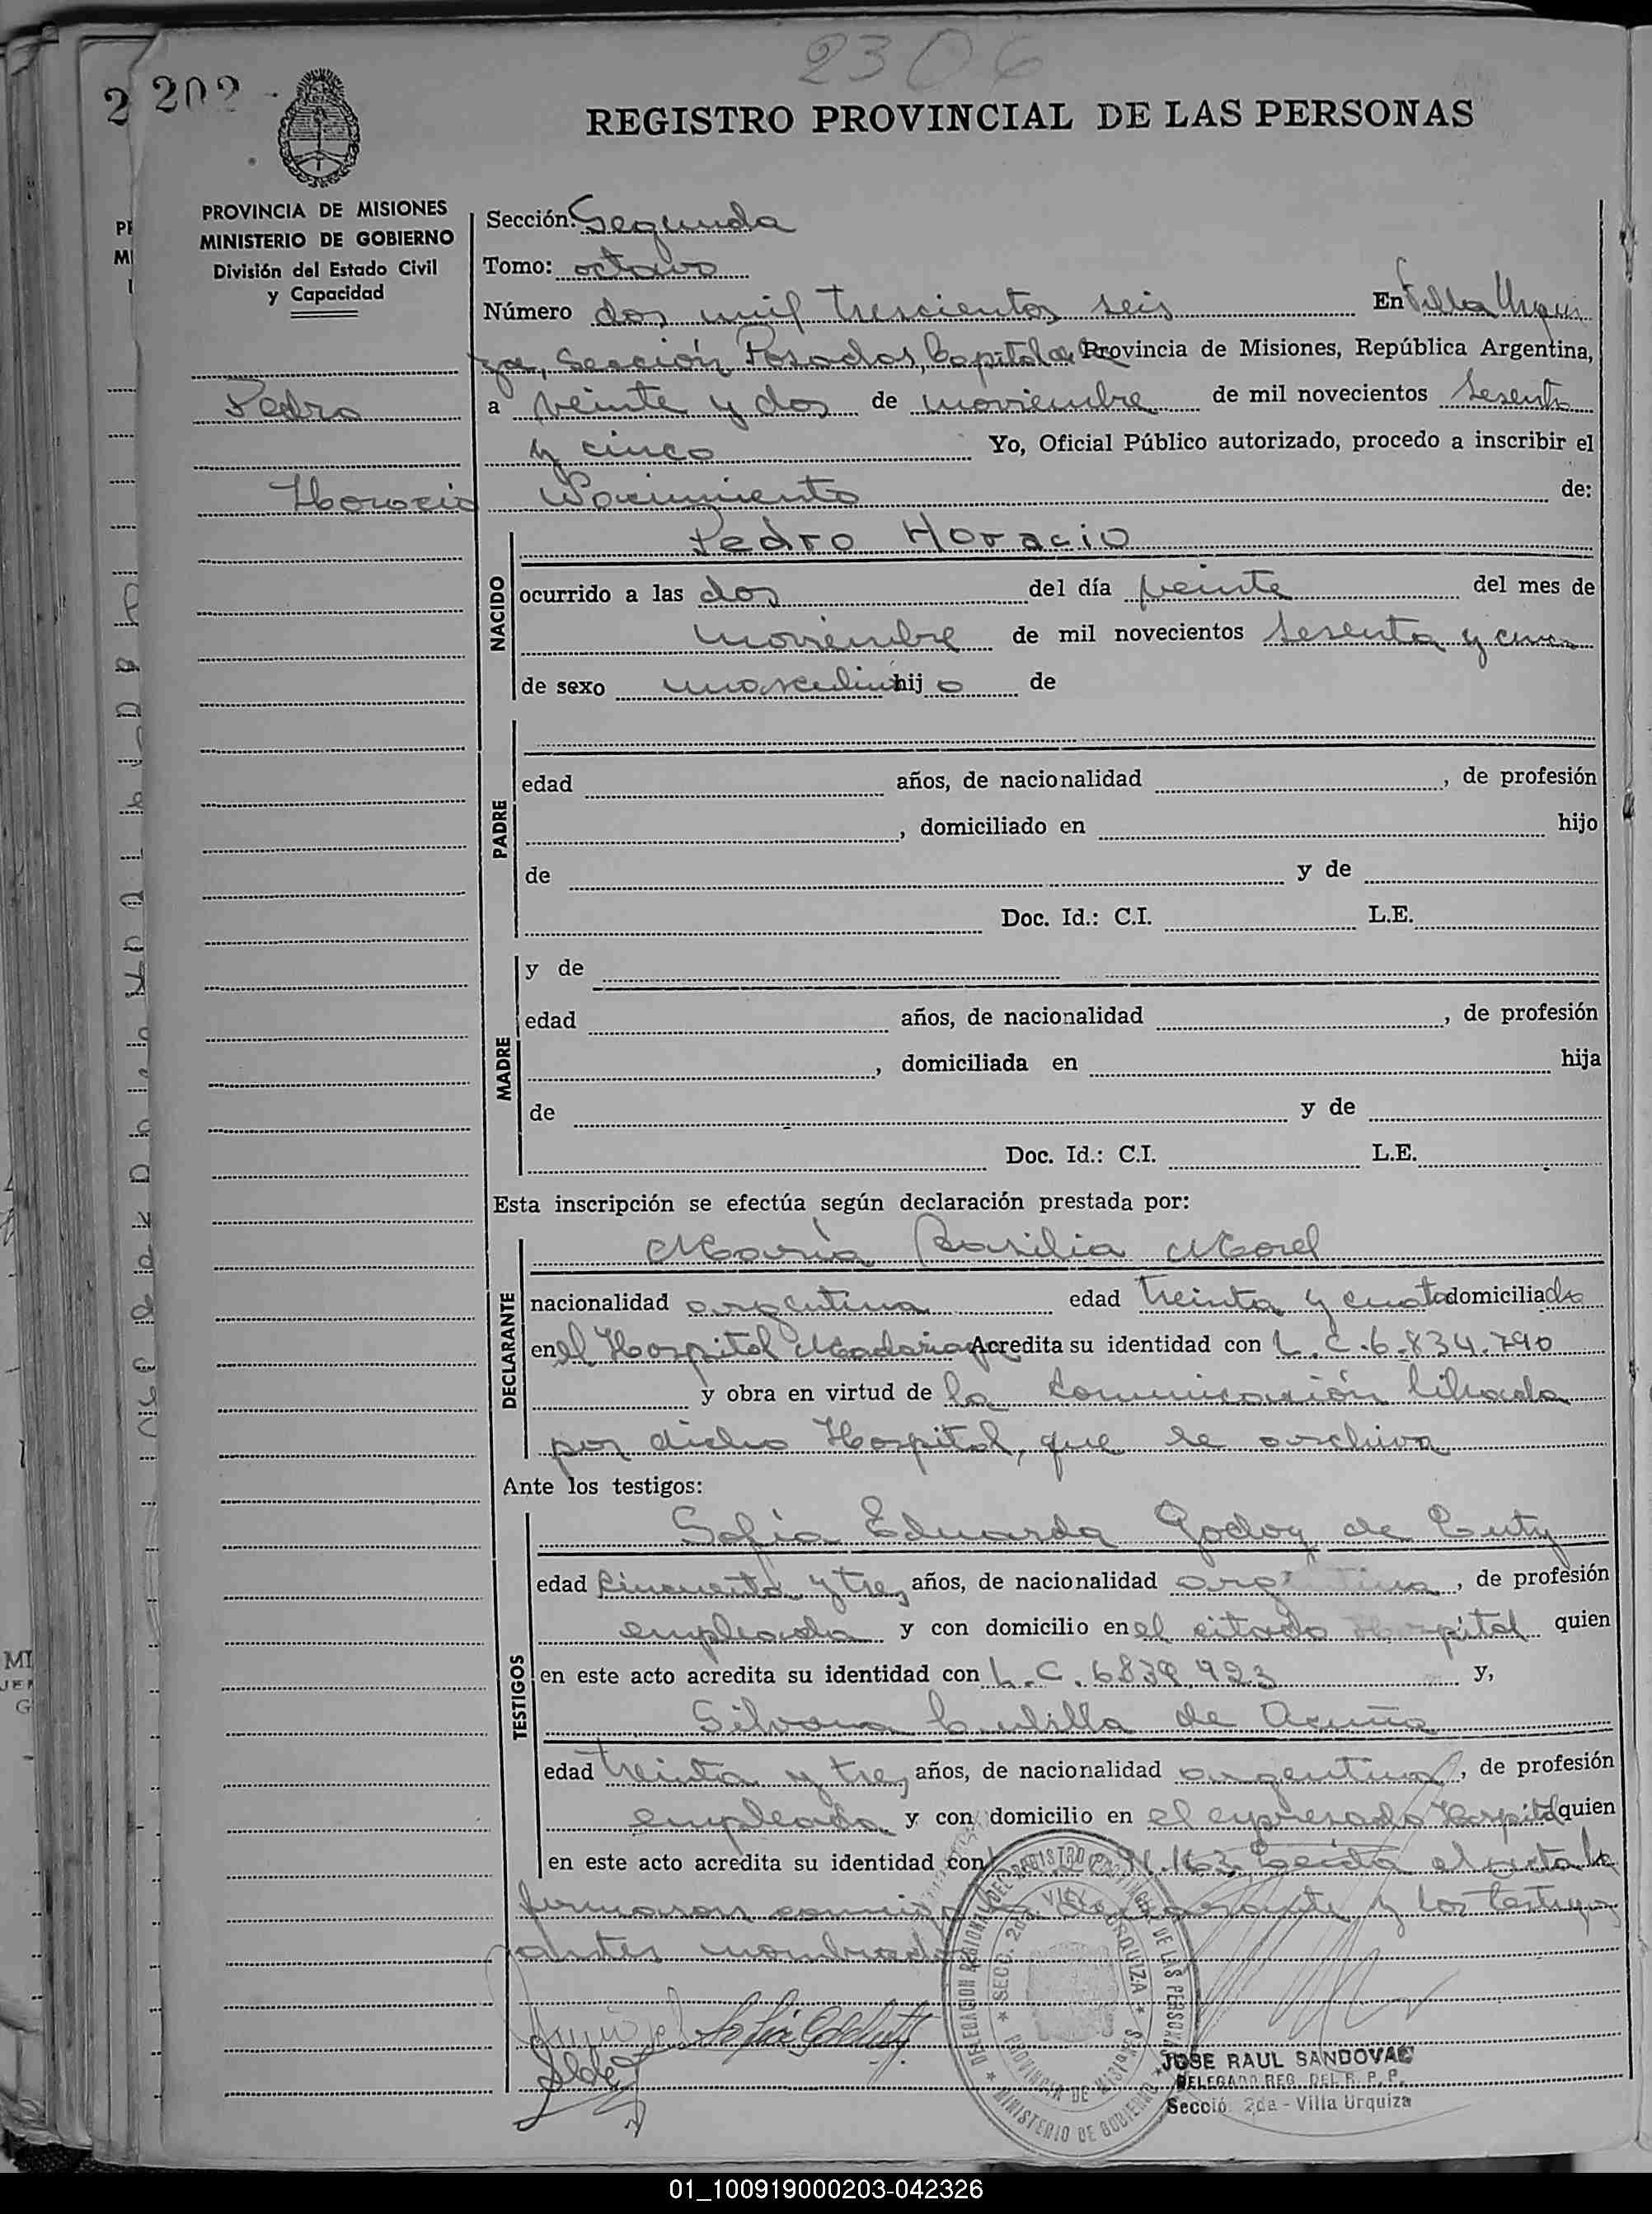 2306
2 202
REGISTRO PROVINCIAL DE LAS PERSONAS
PROVINCIA DE MISIONES
MINISTERIO DE GOBIERNO
División del Estado Civil
y Capacidad
Pedro
Horacio
Sección: Segunda
Tomo: octavo
Número dos mil trescientos seis En Villa Urqui
za, Sección Posadas, Capital de Provincia de Misiones, República Argentina,
a veinte y dos de noviembre de mil novecientos sesenta
y cinco Yo, Oficial Público autorizado, procedo a inscribir el
Nacimiento de:
NACIDO
Pedro Horacio
ocurrido a las dos del día veinte del mes de
noviembre de mil novecientos sesenta y cinco
de sexo masculino hijo de
PADRE
edad años, de nacionalidad , de profesión
, domiciliado en hijo
de y de
Doc. Id.: C.I. L.E.
MADRE
y de
edad años, de nacionalidad , de profesión
, domiciliada en hija
de y de
Doc. Id.: C.I. L.E.
Esta inscripción se efectúa según declaración prestada por:
DECLARANTE
María Basilia Morel
nacionalidad argentina edad treinta y cuatro domiciliada
en el Hospital Madariaga Acredita su identidad con L.C.6.834.790
y obra en virtud de la comunicación librada
por dicho Hospital, que se archiva
Ante los testigos:
TESTIGOS
Sofía Eduarda Godoy de Cuty
edad cincuenta y tres años, de nacionalidad argentina, de profesión
empleada y con domicilio en el citado Hospital quien
en este acto acredita su identidad con L.C. 6839.923 y,
Silvana Cubilla de Acuña
edad treinta y tres años, de nacionalidad argentina, de profesión
empleada y con domicilio en el expresado Hospital quien
en este acto acredita su identidad con 91.163. Leída el acta la
firmaron conmigo la declarante y los testigos
antes nombrados
DELEGACION REGIONAL DEL REGISTRO PROVINCIAL DE LAS PERSONAS
SECC. 2da. VILLA URQUIZA
PROVINCIA DE MISIONES
MINISTERIO DE GOBIERNO
JOSE RAUL SANDOVAL
DELEGADO REG. DEL R. P. P.
Secció 2da - Villa Urquiza
01_100919000203-042326